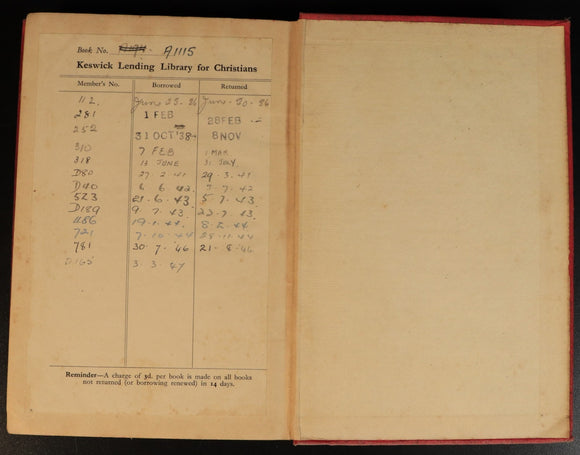 Book No. A1115
Keswick Lending Library for Christians
Member's No. Borrowed Returned
112. June 23. 36 June. 30. 36
281 1 FEB 28 FEB
252 31 OCT '38 8 NOV
310 7 FEB 1 MAR
318 13 JUNE 31 JULY
D80 27. 2. 41 29. 3. 41
D40 6. 42. 7. 7. 42
523 21. 6. 43 5. 7. 43
D189 9. 7. 43. 22. 7. 43.
1186 19. 1. 44. 8. 2. 44
721 7. 10. 44 25. 11. 44
781 30. 7. '46 21. 8. '46
D165 3. 3. 47
Reminder—A charge of 3d. per book is made on all books
not returned (or borrowing renewed) in 14 days.